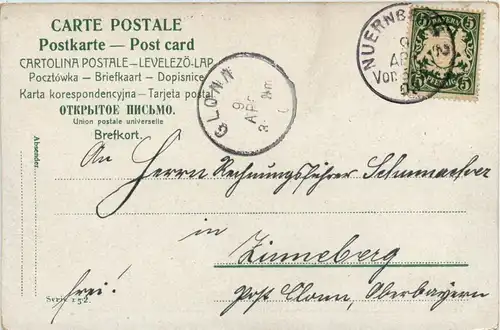 CARTE POSTALE
Postkarte — Post card
CARTOLINA POSTALE — LEVELEZŐ-LAP
Pocztówka — Briefkaart — Dopisnice
Karta korespondencyjna — Tarjeta postal
ОТКРЫТОЕ ПИСЬМО.
Union postale universelle
Brefkort.
NUERNB
9
APR
Vor
5 BAYERN 5
5 PFENNIG 5
GLONN
9
APR
Nm
Absender.
An Herrn Rechnungsführer Schumacher
in
Zinneberg
frei! Post Glonn, Oberbayern
Serie 152.